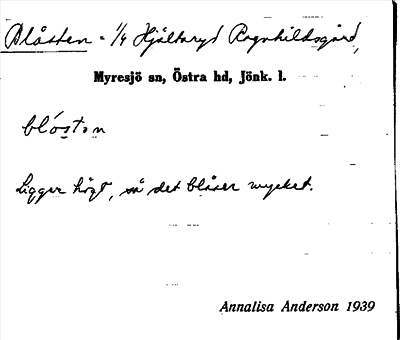 Blåsten - 1/4 Hjältaryd Ragnhildsgård,
Myresjö sn, Östra hd, Jönk. l.
blóston
Ligger högt, så det blåser mycket.
Annalisa Anderson 1939